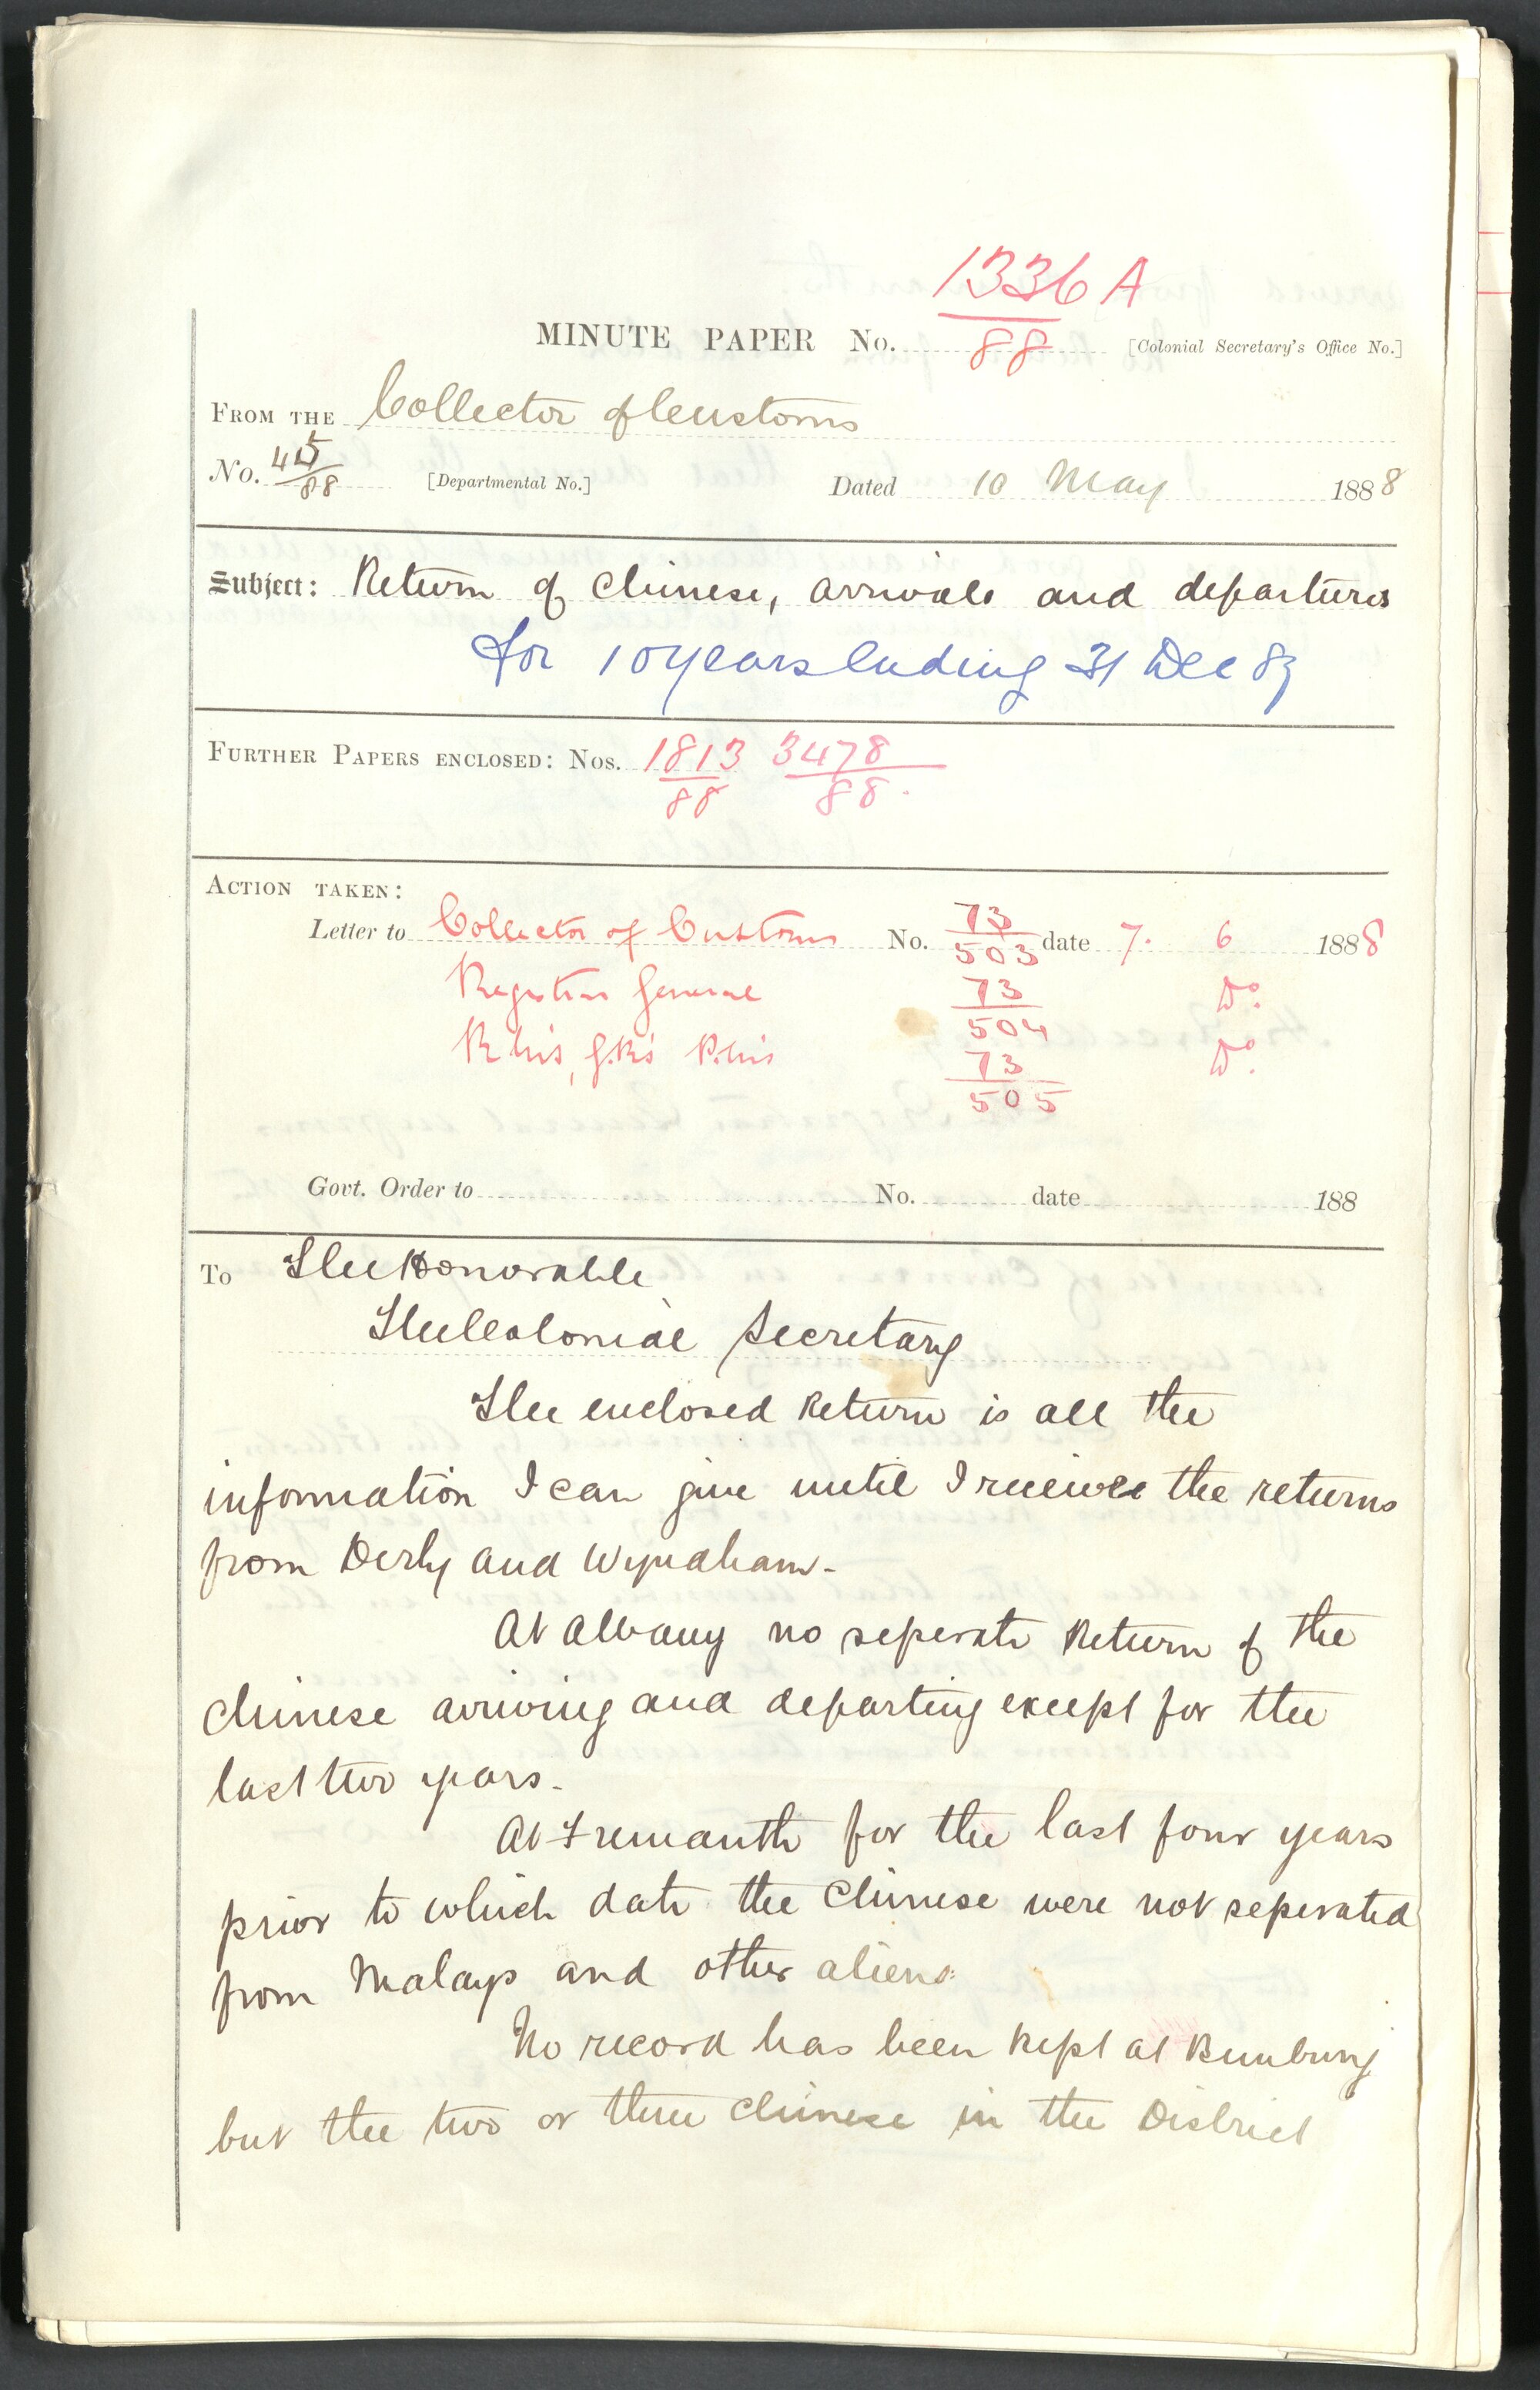 1336 A
MINUTE PAPER No. 88 [Colonial Secretary's Office No.]
FROM THE Collector of Customs
No. 45/88 [Departmental No.] Dated 10 May 1888
Subject: Return of Chinese, arrivals and departures
for 10 years ending 31 Dec 87
FURTHER PAPERS ENCLOSED: Nos. 1813/88 3478/88.
ACTION TAKEN:
Letter to Collector of Customs No. 73/503 date 7. 6 1888
Registrar General 73/504 Do.
73/505 Do.
Govt. Order to No. date 188
To The Honorable
The Colonial Secretary
The enclosed Return is all the
information I can give until I receive the returns
from Derby and Wyndham -
At Albany no seperate Return of the
Chinese arriving and departing except for the
last two years -
At Fremantle for the last four years
prior to which date the Chinese were not seperated
from Malays and other aliens
No record has been kept at Bunbury
but the two or three Chinese in the District